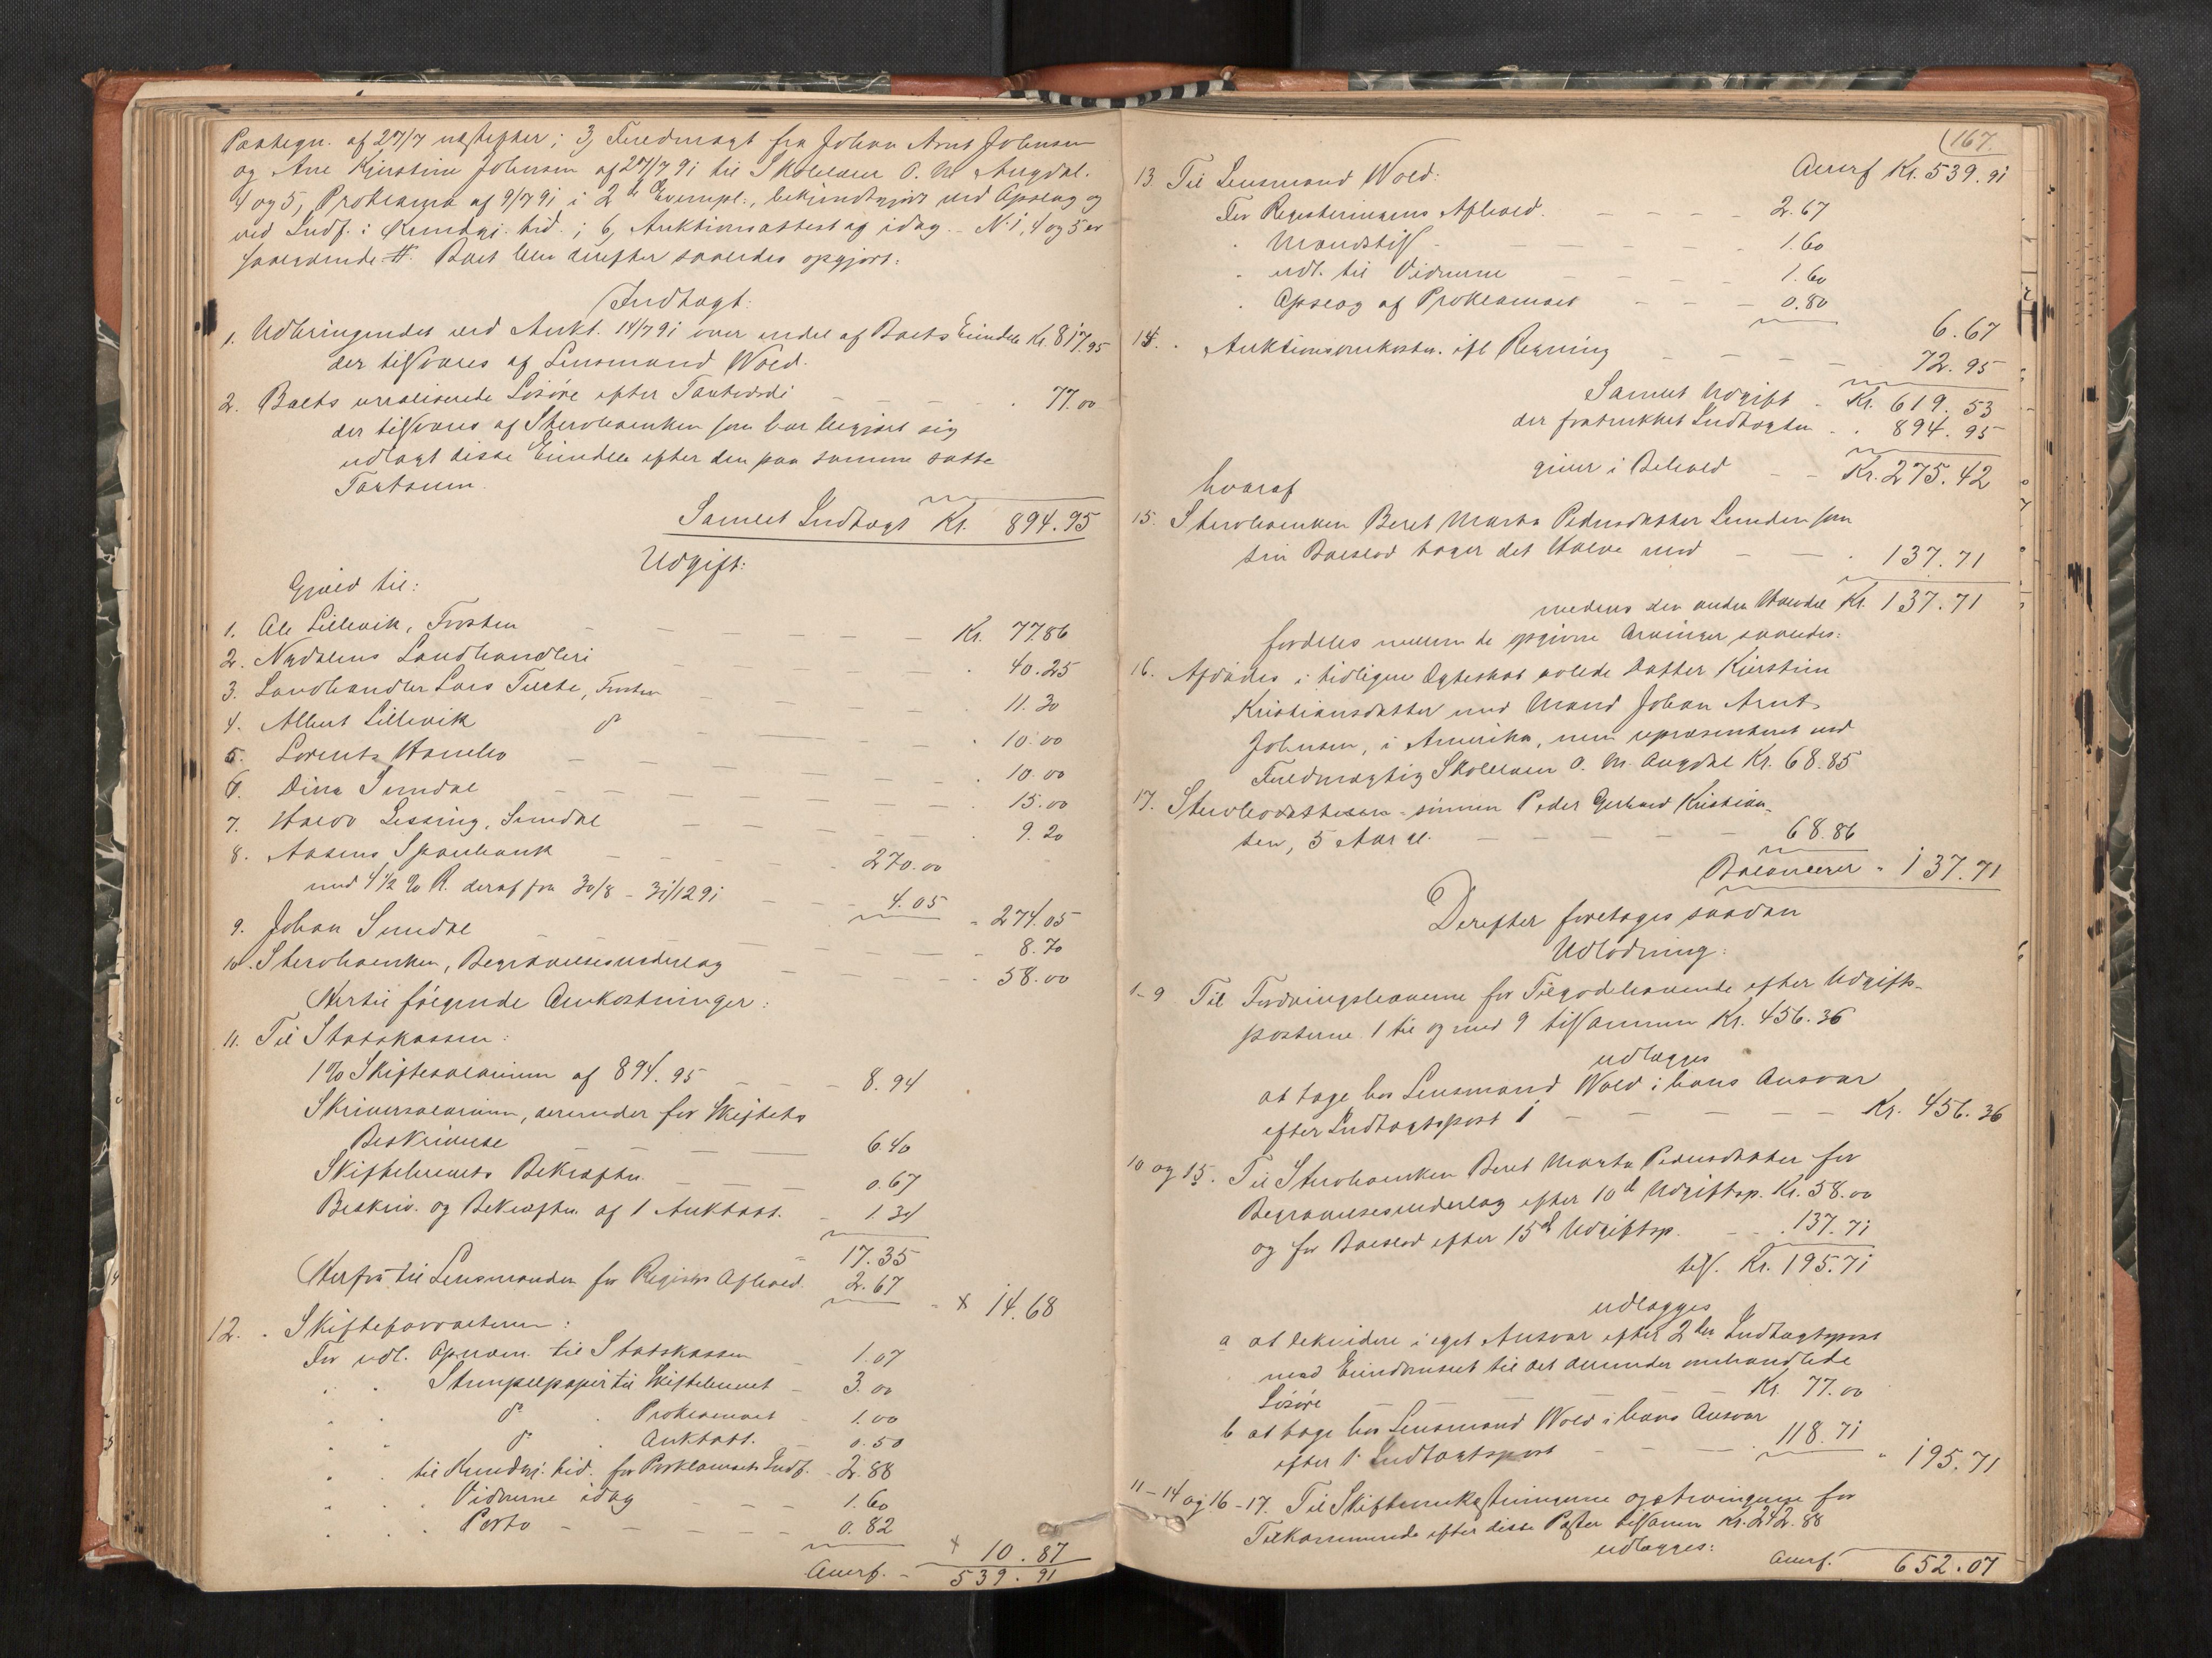 Paategn. af 27/7 næstefter; 3, Fuldmagt fra Johan Arnt Johnsen
og Ane Kjerstine Johnsen af 27/7 91 til Skolelærer O. M. Augdal.
4 og 5, Proklama af 9/7 91 i 2de Exempl., bekjendtgjort ved Opslag og
ved Indf. i Kundgj. tid.; 6, Auktionsattest af idag. No 1, 4 og 5 er
saalydende #. Boet blev derefter saaledes opgjort:
Indtægt:
1. Udbringendet ved Aukt. 14/7 91 over endel af Boets Eiendele Kr. 817.95
der tilsvares af Lensmand Wold.
2. Boets urealiserede Løsøre efter Taxtværdi - - - . 77.00
der tilsvares af Stervboenken som har begjært sig
udlagt disse Eiendele efter den paa samme satte
Taxtsum.
Samlet Indtægt Kr. 894.95
Udgift:
Gjæld til:
1. Ole Lillevik, Frosten - - - - - Kr. 77.86
2. Nydalens Landhandleri - - - - - . 40.25
3. Landhandler Lars Tuseth, Frosten - - - - . 11.30
4. Albert Lillevik do - - - - . 10.00
5. Lorents Hambo - - - - - . 10.00
6. Dina Sundal - - - - - - . 15.00
7. Halvor Lessing, Sundal - - - - - . 9.20
8. Aasens Sparebank - - - - 270.00
med 4 1/2 % R. deraf fra 30/8 - 31/12 91 - - 4.05 - 274.05
9. Johan Sundal - - - - - - 8.70
10. Stervboenken, Begravelsesuderlag - - - - 58.00
Hertil følgende Omkostninger:
11. Til Statskassen:
1% Skiftesalarium af 894.95 - - - 8.94
Skriversalarium, derunder for Skiftets
Beskrivelse - - - 6.40
Skiftebrevets Bekræftn. - - - 0.67
Beskriv. og Bekræftn. af 1 Auktatt. - 1.34
17.35
Herfra til Lensmanden for Registr. Afhold. 2.67 - x 14.68
12. . Skifteforvalteren:
For udl. Opnævn. til Statskassen - 1.07
. . Stempelpapir til Skiftebrevet - 3.00
. . do . Proklamaet - 1.00
. . do . Auktatt. - 0.50
. . til Kundgj. tid. for Proklamaets Indf. - 2.88
. . . Vidnerne idag - - - 1.60
. . . Porto - - - - - 0.82
x 10.87
Overf. - 539.91
167.
Overf Kr. 539.91
13. Til Lensmand Wold:
For Registreringens Afhold. - - - - 2.67
. Mandstils - - - - - - 1.60
. udl. til Vidnerne - - - - 1.60
. Opslag af Proklamaet - - - 0.80
6.67
14. . Auktionsomkostn. ifl Regning - - - - 72.95
Samlet Udgift - Kr. 619.53
der fratrukket Indtægten . . 894.95
giver i Behold - - Kr. 275.42
hvoraf
15. Stervboenken Beret Marta Pedersdatter Sundal som
sin Boeslod tager det Halve med - - . 137.71
medens den anden Halvdel Kr. 137.71
fordeles mellem de opgivne Arvinger saaledes:
16. Afdødes i tidligere Ægteskab avlede Datter Kjerstine
Kristiansdatter med Mand Johan Arnt
Johnsen, i Amerika, men repræsenteret ved
Fuldmægtig Skolelærer O. M. Augdal Kr. 68.85
17. Stervbo sønnen Peder Gerhard Kristian-
sen, 5 Aar gl. - - - - - 68.86
Balancerer . 137.71
Derefter foretages saadan
Udlodning:
1-9 Til Fordringshaverne for Tilgodehavende efter Udgifts-
posterne 1 til og med 9 tilsammen Kr. 456.36
udlægges
at tage hos Lensmand Wold i hans Ansvar
efter Indtægtspost 1 - - - - - Kr. 456.36
10 og 15. Til Stervboenken Beret Marta Pedersdatter for
Begravelsesuderlag efter 10de Udgiftsp. Kr. 58.00
og for Boeslod efter 15de Udgiftsp. - - . 137.71
tils. Kr. 195.71
udlægges
a at likvidere i eget Ansvar efter 2den Indtægtspost
mod Eiendomsret til det derunder omhandlede
Løsøre - - - - - Kr. 77.00
b at tage hos Lensmand Wold i hans Ansvar
efter 1. Indtægtspost - - - . 118.71 . 195.71
11-14 og 16-17. Til Skifteomkostningerne og Arvingerne for
Tilkommende efter disse Poster tilsammen Kr. 242.88
udlægges:
Overf. 652.07